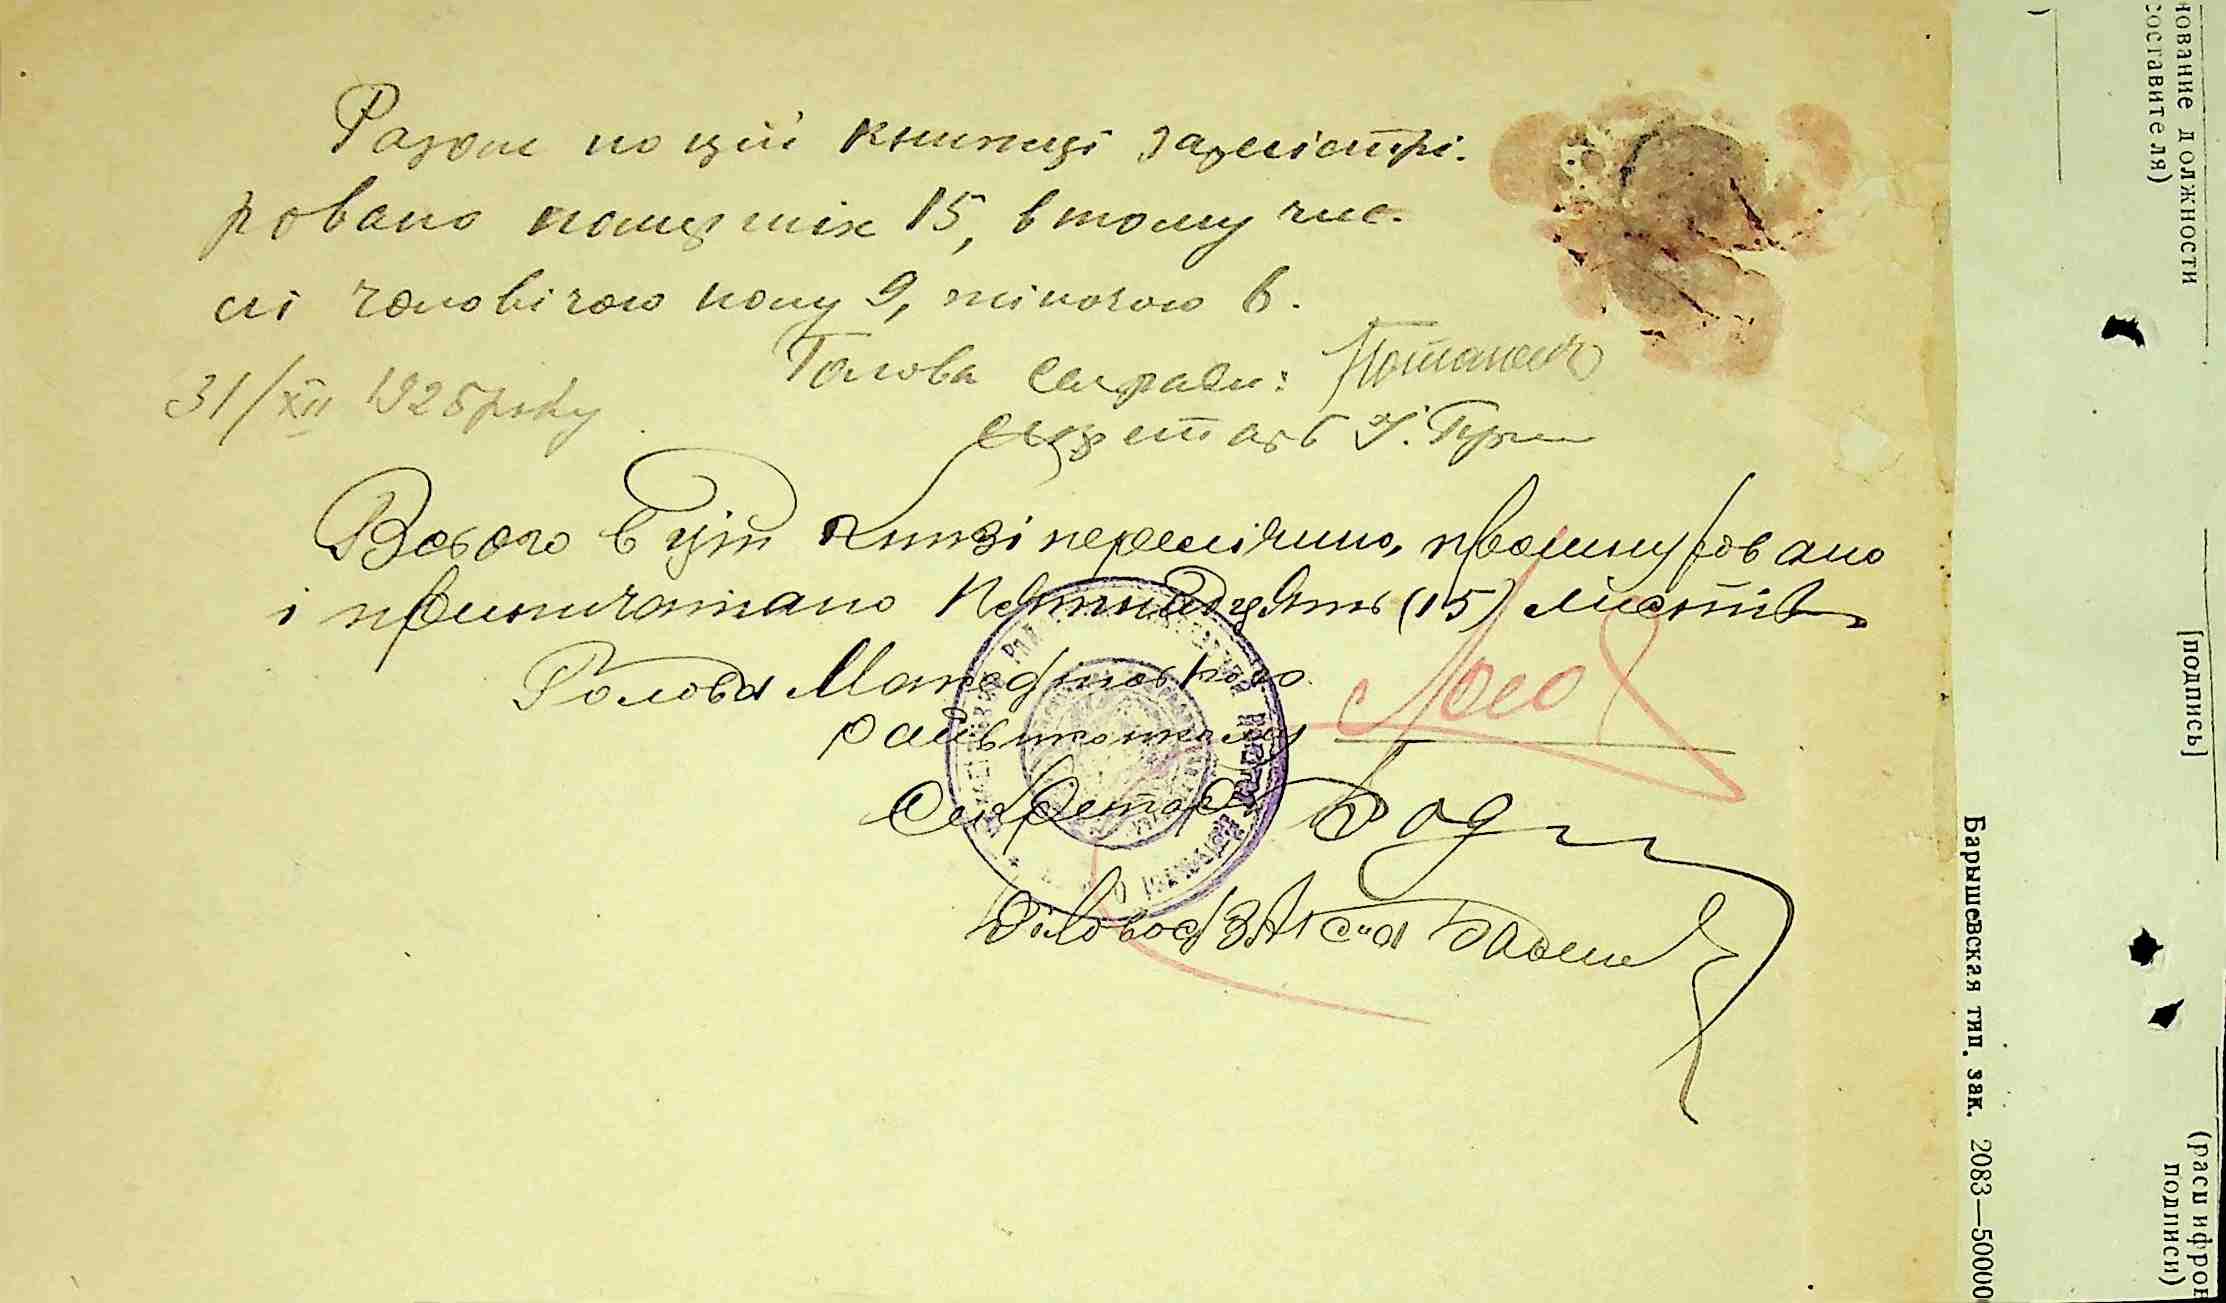 Разом по цій книжці зарегістрі-
ровано померших 15, в тому чис-
лі чоловічого полу 9, жіночого 6.
Голова сільради:
31/XII 1925 року
секретарь
Всього в цій книзі перелічино, прошнуровано
і припичатано Пятнадцять (15) листів
Голова
райвиконкому
Секретарь
Діловод ЗАГСа
нование должности
составителя)
[подпись]
(расшифров
подписи)
Барышевская тип. зак. 2083—50000